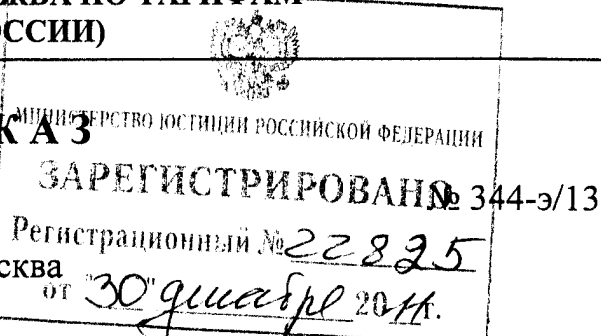 ЖБА ПО ТАРИФАМ
ОССИИ)
КАЗ
МИНИСТЕРСТВО ЮСТИЦИИ РОССИЙСКОЙ ФЕДЕРАЦИИ
ЗАРЕГИСТРИРОВАНО
№ 344-э/13
Регистрационный № 22825
сква
от "30" декабря 2011г.